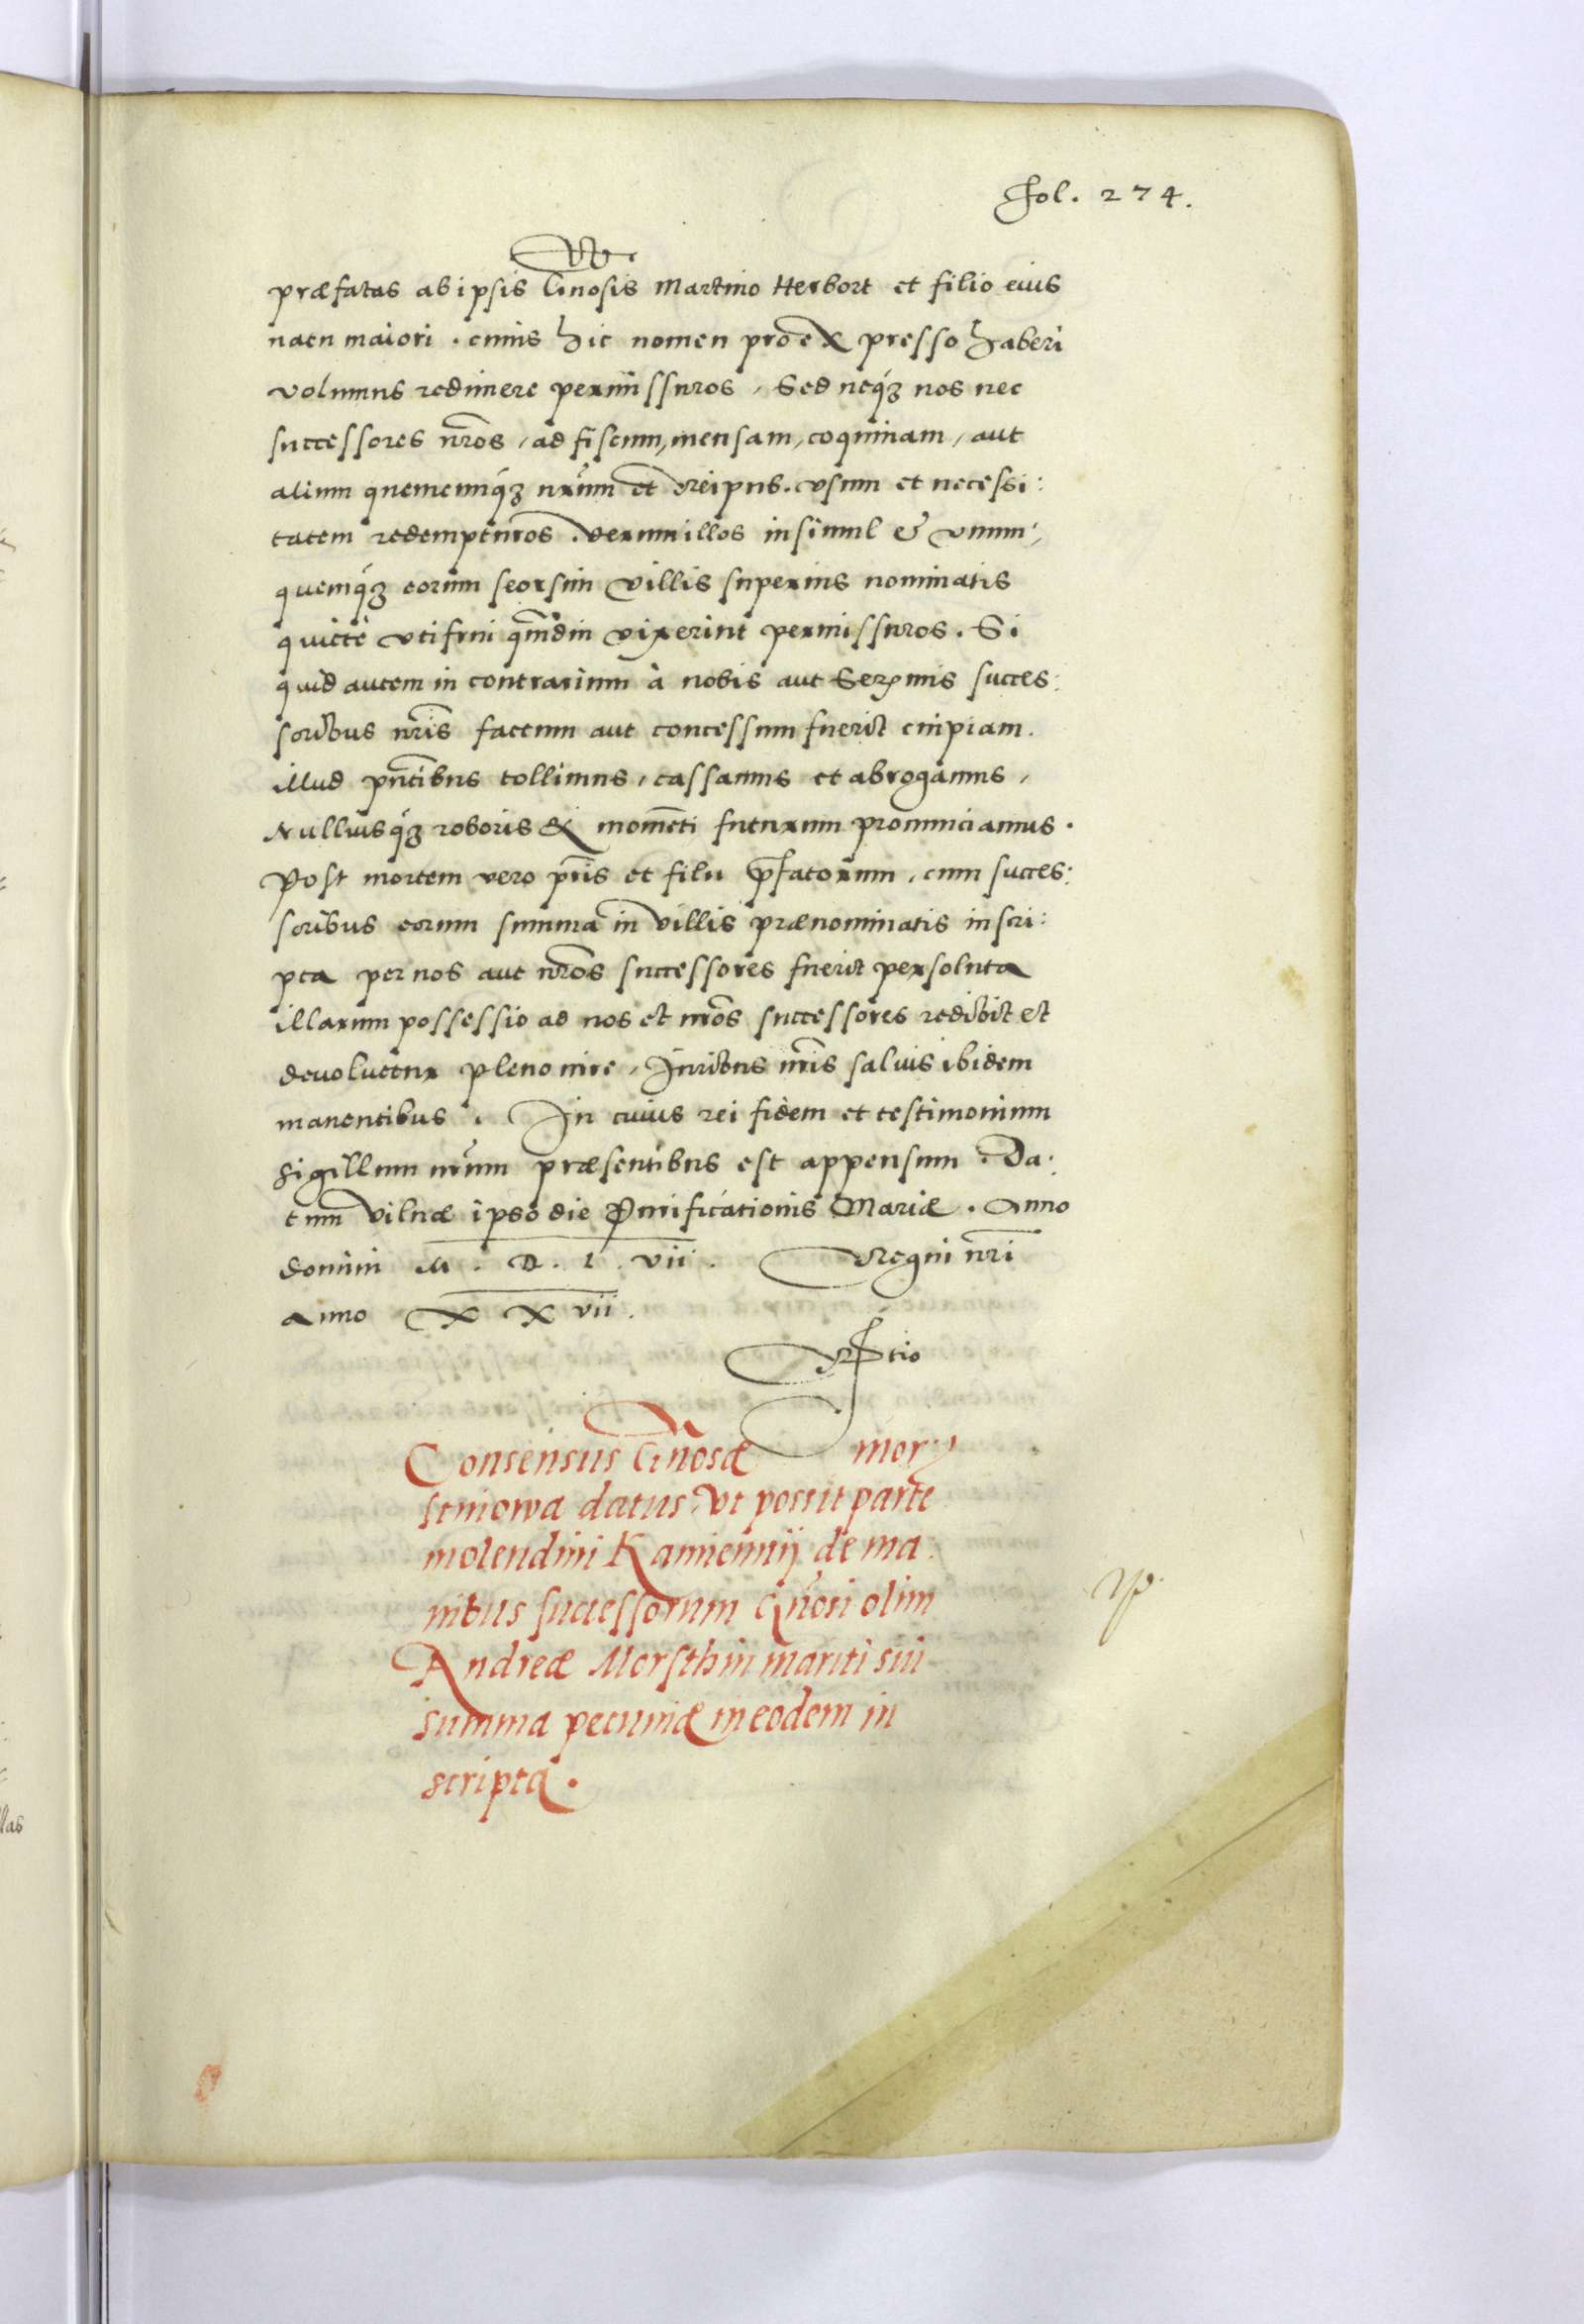 Fol. 274.
præfatas ab ipsis Gnosis Martino Herbort et filio eius
natu maiori. cuius hic nomen pro expresso haberi
volumus redimere permissuros, Sed neq3 nos nec
successores nros, ad fiscum, mensam, coquinam, aut
alium quemcunq3 nrum et Reipub. vsum et necessi:
tatem redempturos. verum illos insimul & vnum,
quemq3 eorum seorsim villis superius nominatis
quietè vtifrui qmdiu vixerint permissuros. Si
quid autem in contrarium à nobis aut Sermis succes:
soribus nris factum aut concessum fuerit cuipiam.
illud pntibus tollimus, cassamus et abrogamus,
Nulliusq3 roboris & momenti futurum pronunciamus.
Post mortem vero pris et filii pfatorum, cum succes:
soribus eorum summa in villis prænominatis inscri:
pta per nos aut nros successores fuerit persoluta
illarum possessio ad nos et nros successores redibit et
devoluetur pleno iure, Iuribus nris saluis ibidem
manentibus. In cuius rei fidem et testimonium
sigillum nrum præsentibus est appensum. Da:
tum Vilnæ ipso die Purificationis Mariæ. Anno
domini M. D. L. vii. Regni nri
Anno XXvii.
Rtio
Consensus Gnosæ Mor
stniowa datus, vt possit parte
molendini Kamiennij de ma
nibus successorum Gnosi olim
Andreæ Morsthin mariti sui
summa pecuniæ in eodem in
scripta.